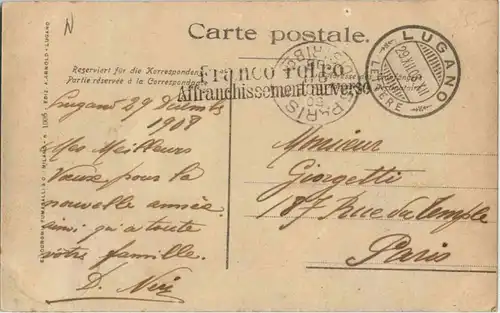 N
Carte postale.
LUGANO
29.XII.08.XII
LETTERE
PARIS
DISTRIBUTION
Reserviert für die Korrespondenz
Partie réservée à la Correspondance
Franco retro
Affranchissement au verso
Lugano 29 Décemb.
1908
Mes Meilleurs
Vœux pour la
nouvelle année
ainsi qu'a toute
votre famille.
Monsieur
Giorgetti
187 Rue du Temple
Paris